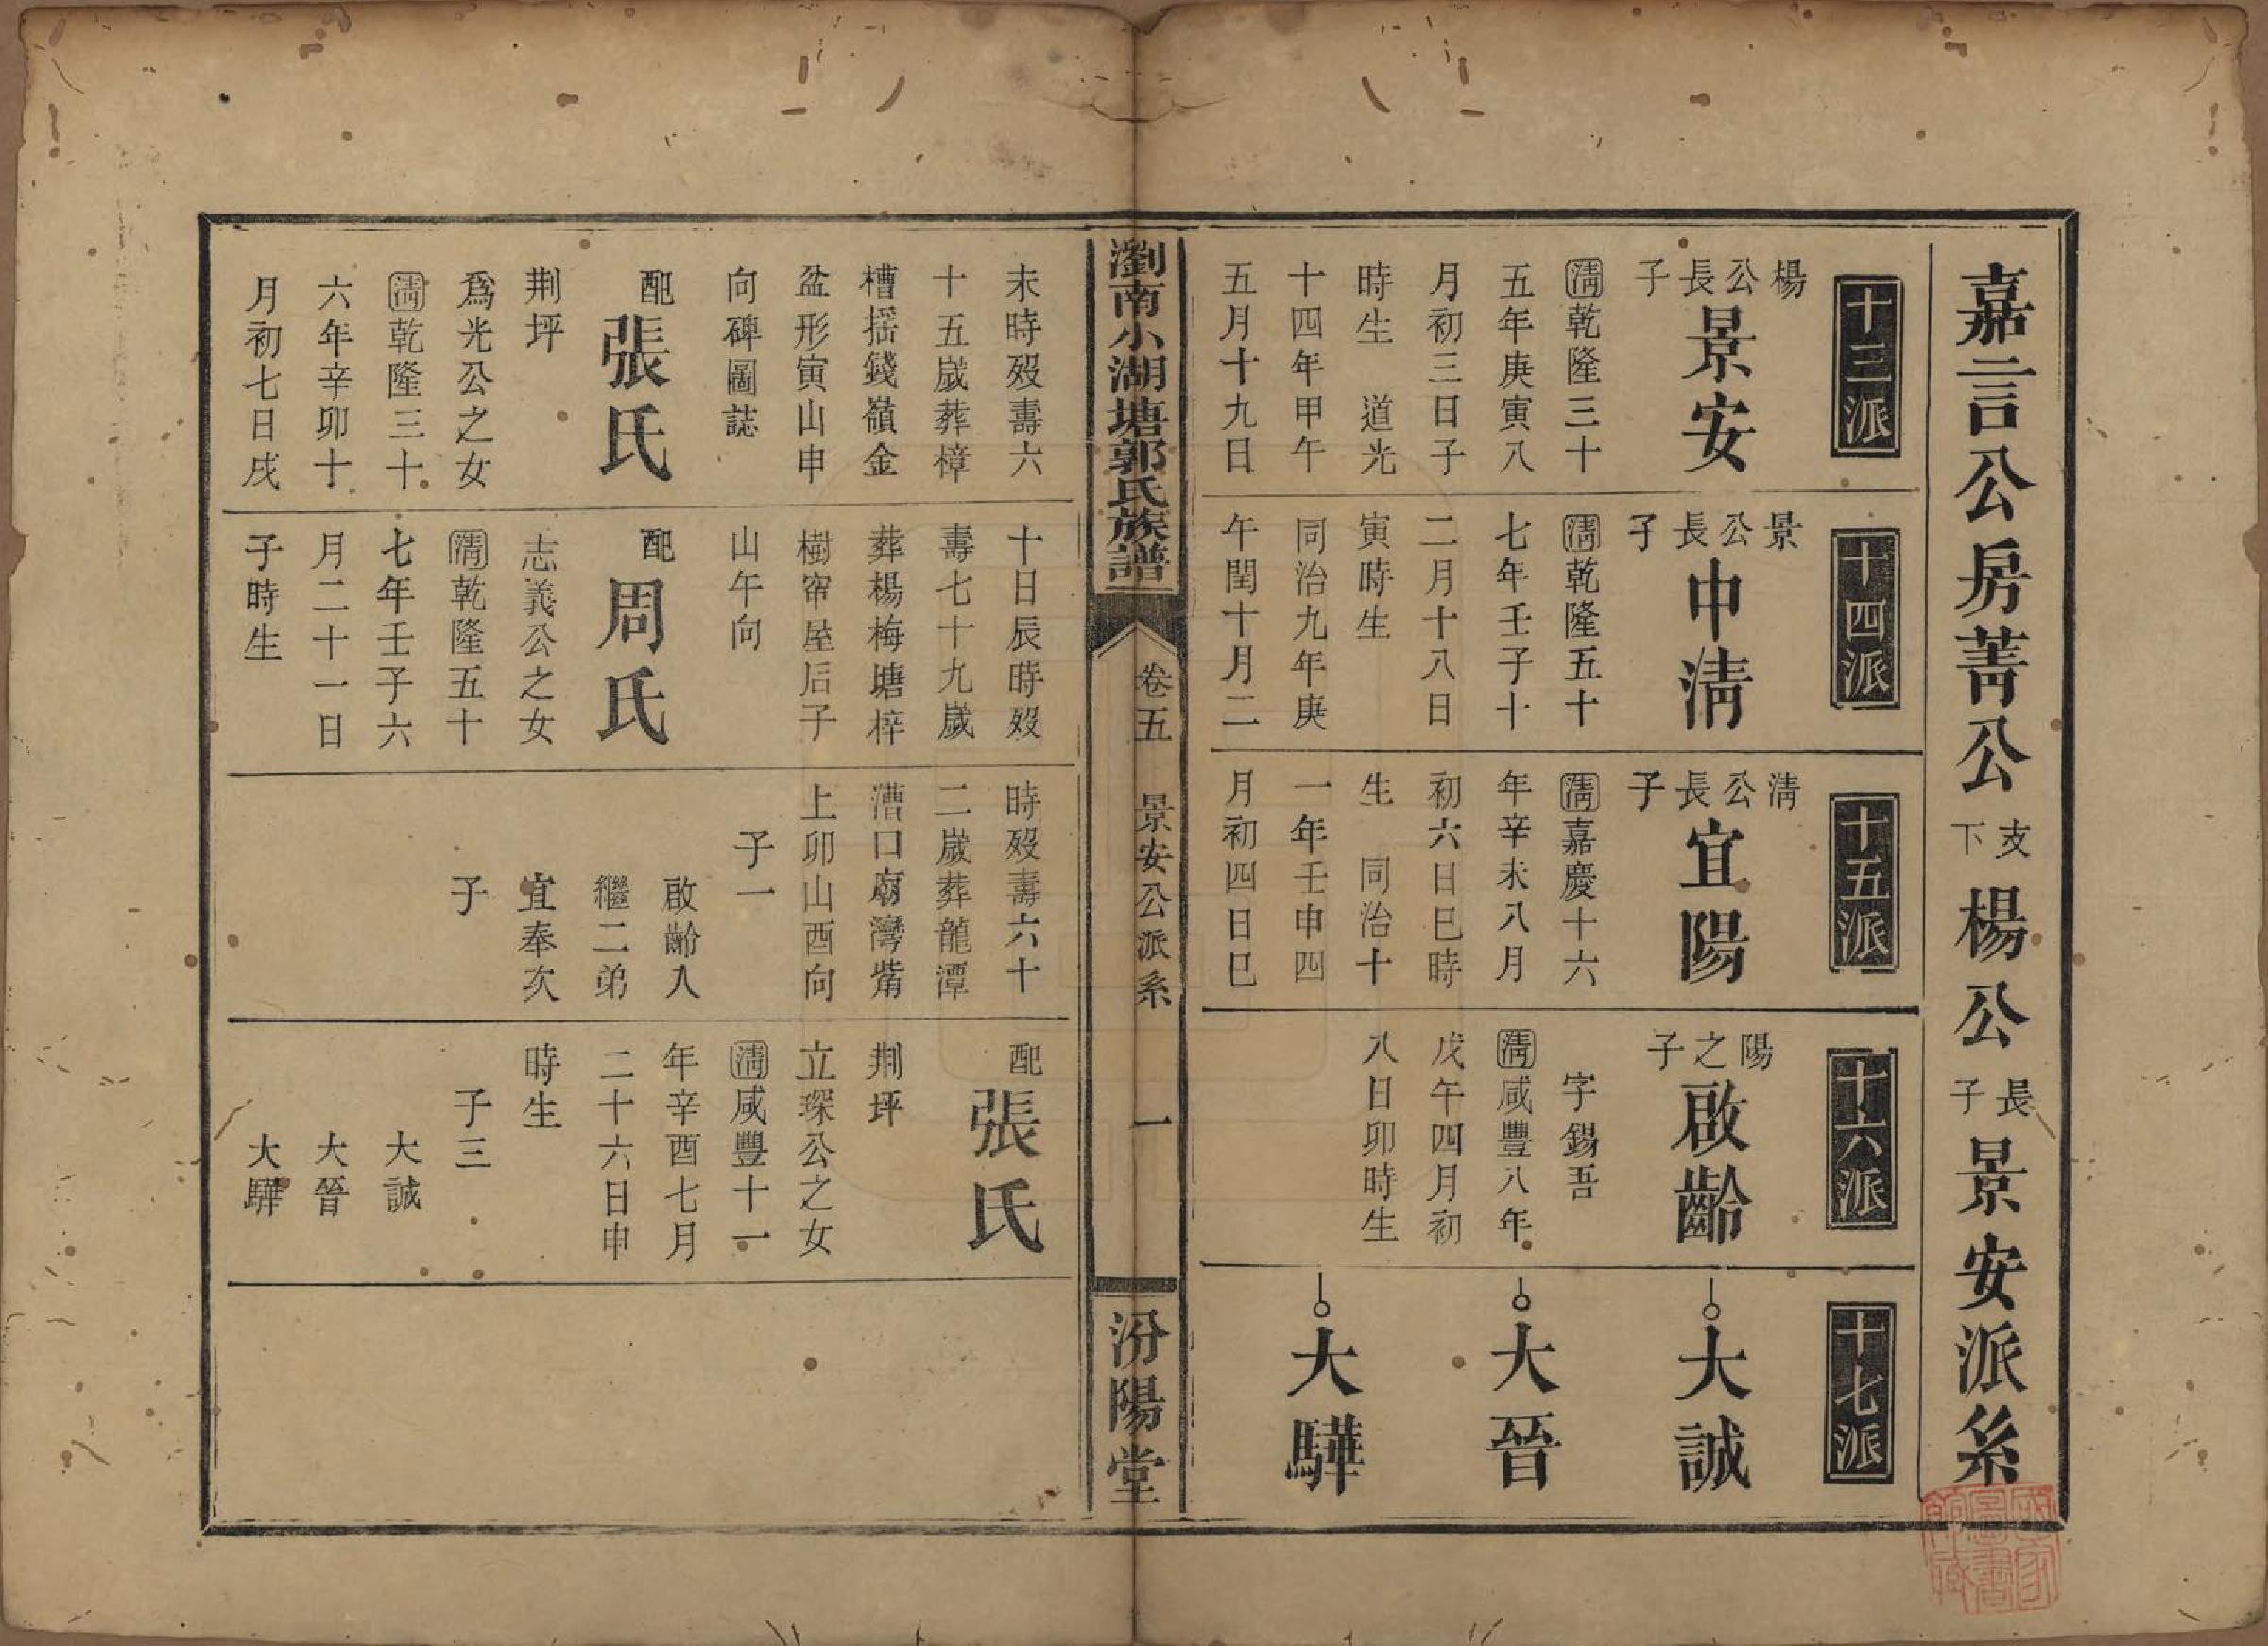 嘉言公房菁公支下楊公長子景安派系
十三派
楊公長子
景安
清乾隆三十
五年庚寅八
月初三日子
時生　道光
十四年甲午
五月十九日
十四派
景公長子
中清
清乾隆五十
七年壬子十
二月十八日
寅時生
同治九年庚
午閏十月二
十五派
清公長子
宜陽
清嘉慶十六
年辛未八月
初六日巳時
生　同治十
一年壬申四
月初四日巳
十六派
陽之子
啟齡
字錫吾
清咸豐八年
戊午四月初
八日卯時生
十七派
大誠
大晉
大驊
瀏南小湖塘郭氏族譜
卷五　景安公派系　一
汾陽堂
未時歿壽六
十五歲葬樟
槽搖錢嶺金
盆形寅山申
向碑圖誌
配張氏
荆坪
爲光公之女
清乾隆三十
六年辛卯十
月初七日戌
十日辰時歿
壽七十九歲
葬楊梅塘梓
樹窄屋后子
山午向
配周氏
志義公之女
清乾隆五十
七年壬子六
月二十一日
子時生
時歿壽六十
二歲葬龍潭
漕口廟灣觜
上卯山酉向
子一
啟齡入
繼二弟
宜奉次
子
配張氏
荆坪
立琛公之女
清咸豐十一
年辛酉七月
二十六日申
時生
子三
大誠
大晉
大驊
國家圖書館藏